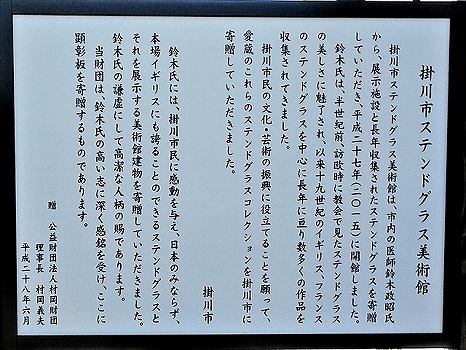 掛川市ステンドグラス美術館
掛川市ステンドグラス美術館は、市内の医師鈴木政昭氏
から、展示施設と長年収集されたステンドグラスを寄贈
していただき、平成二十七年(二〇一五)に開館しました。
鈴木氏は、半世紀前、訪欧時に教会で見たステンドグラス
の美しさに魅了され、以来十九世紀のイギリス、フランス
のステンドグラスを中心に長年に亘り数多くの作品を
収集されてきました。
掛川市民の文化・芸術の振興に役立てることを願って、
愛蔵のこれらのステンドグラスコレクションを掛川市に
寄贈していただきました。
掛川市
鈴木氏には、掛川市民に感動を与え、日本のみならず、
本場イギリスにも誇ることのできるステンドグラスと
それを展示する美術館建物を寄贈していただきました。
鈴木氏の謙虚にして高潔な人柄の賜であります。
当財団は、鈴木氏の高い志に深く感銘を受け、ここに
顕彰板を寄贈するものであります。
贈 公益財団法人村岡財団
理事長 村岡義夫
平成二十八年六月